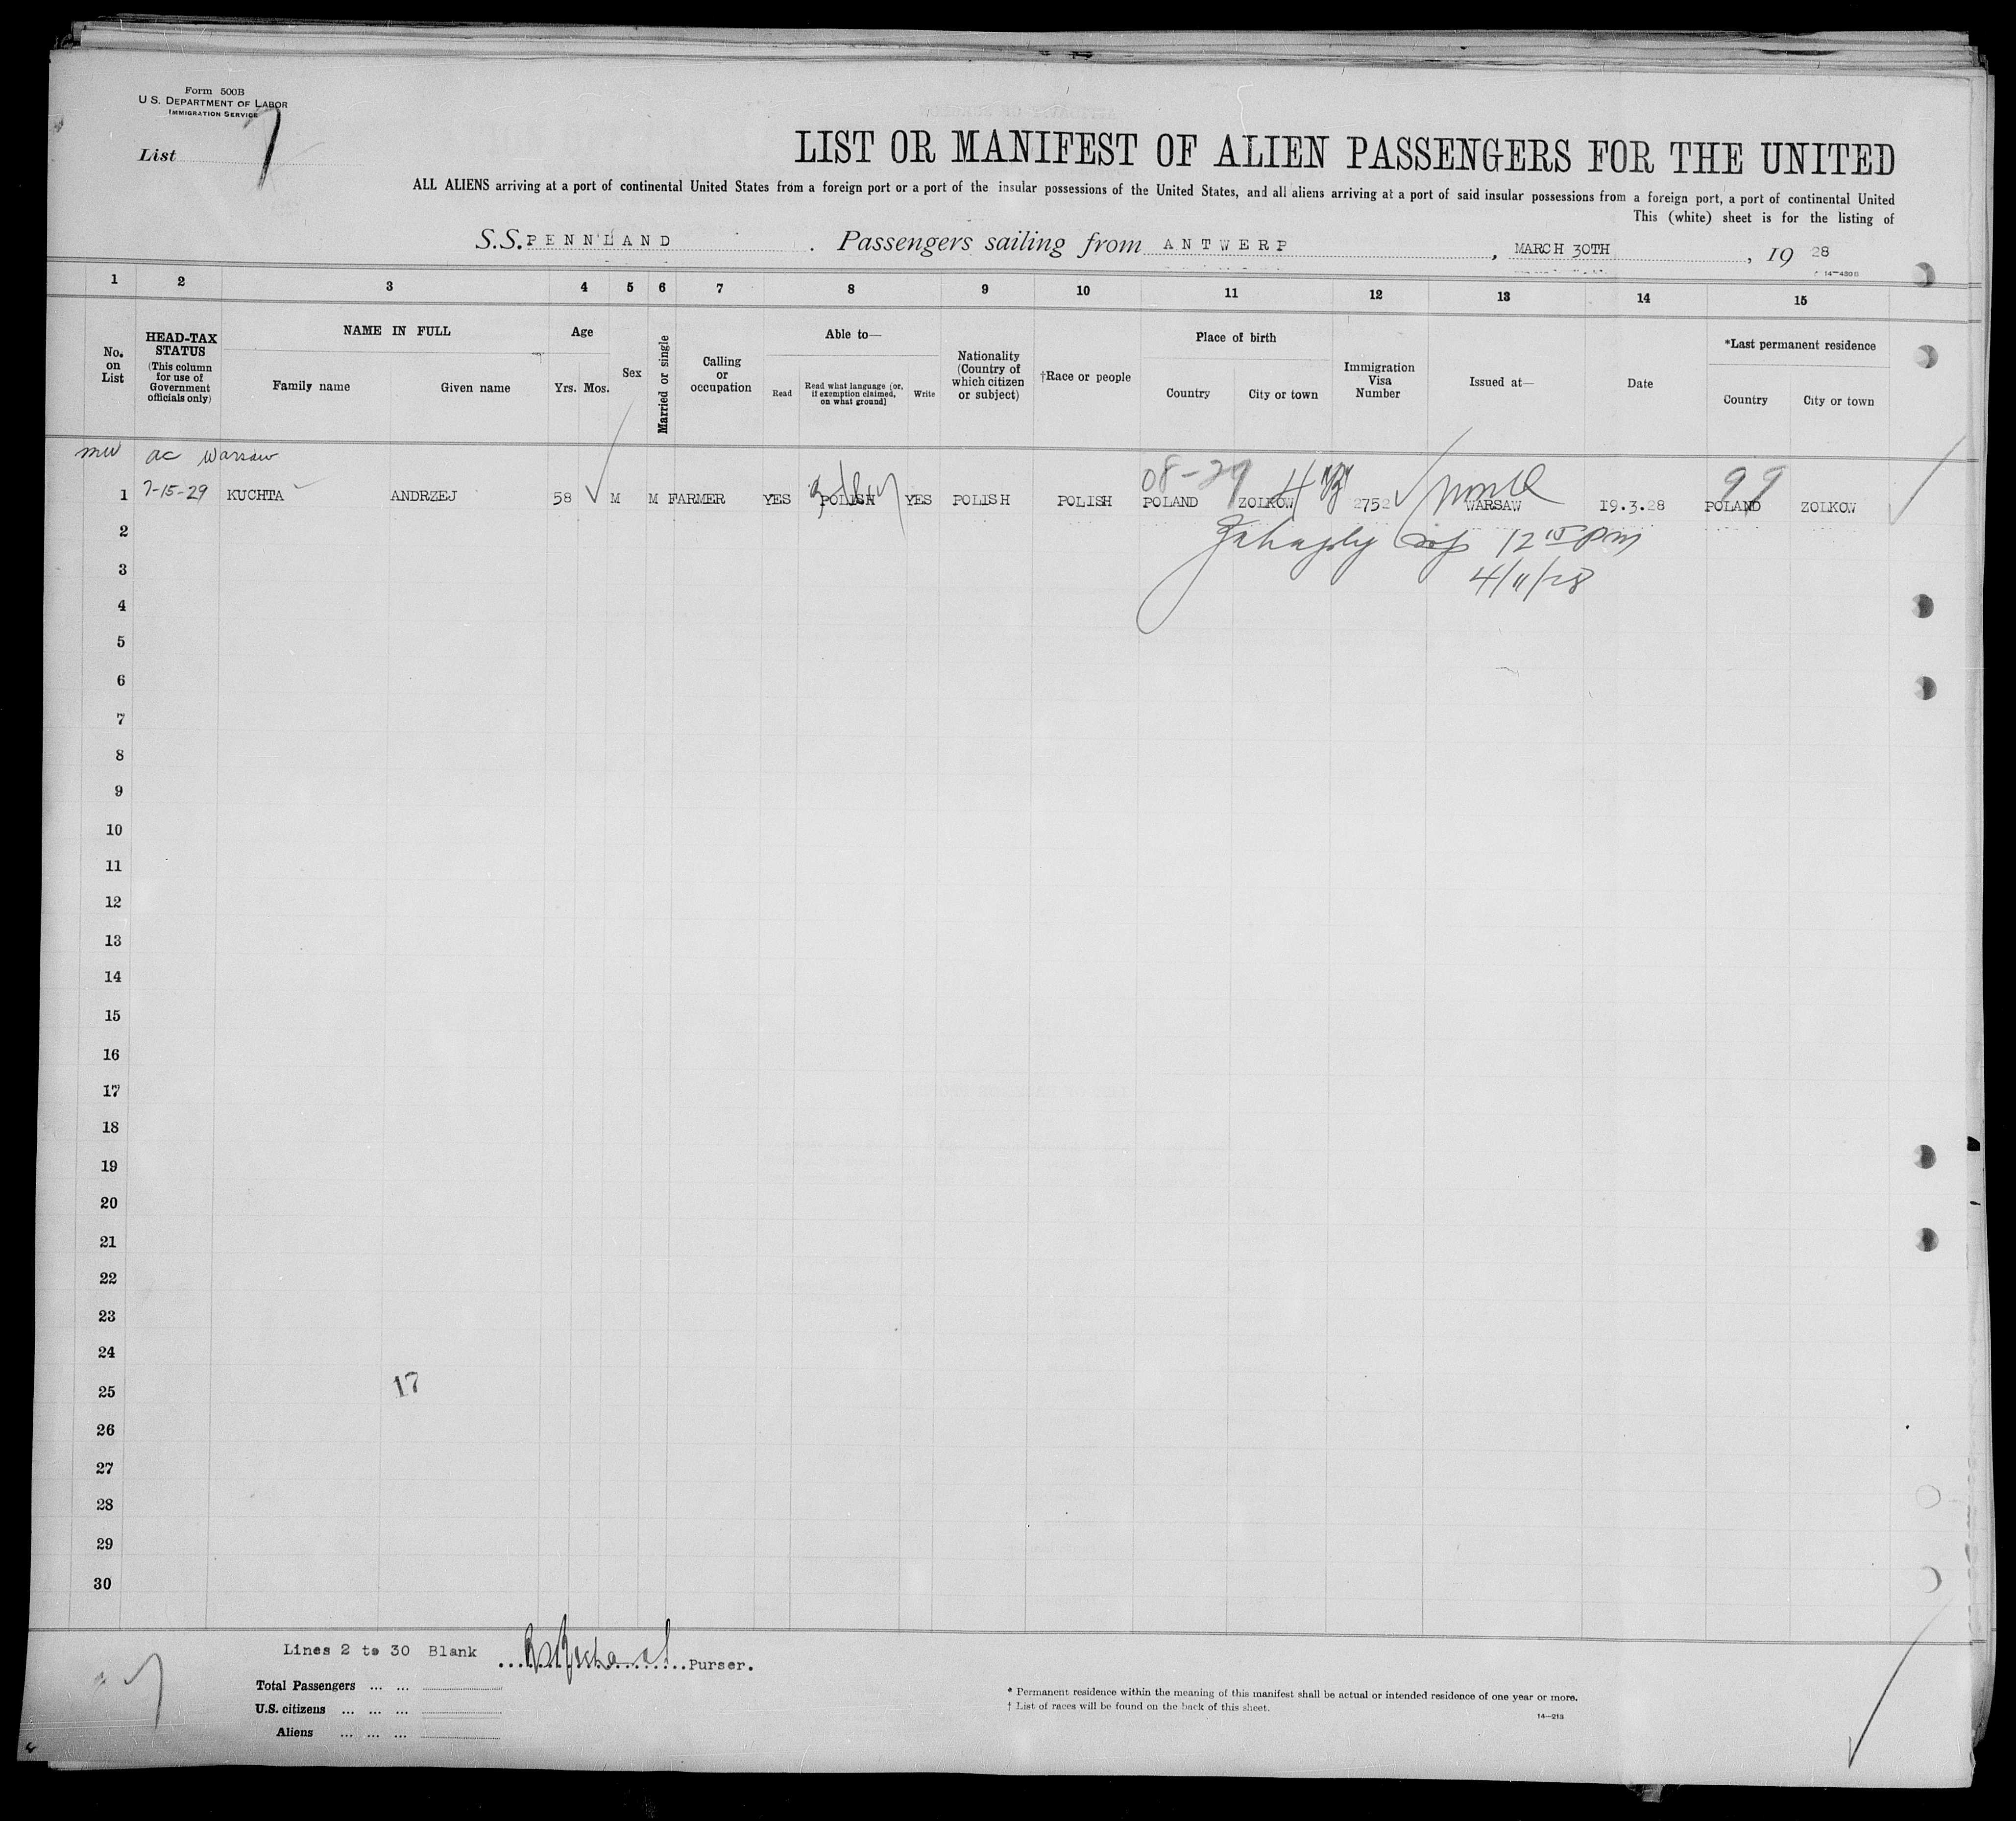 Form 500B
U.S. DEPARTMENT OF LABOR
IMMIGRATION SERVICE
List 7
LIST OR MANIFEST OF ALIEN PASSENGERS FOR THE UNITED
ALL ALIENS arriving at a port of continental United States from a foreign port or a port of the insular possessions of the United States, and all aliens arriving at a port of said insular possessions from a foreign port, a port of continental United
This (white) sheet is for the listing of
S.S. PENNLAND. Passengers sailing from ANTWERP, MARCH 30TH, 19 28
14—430B
1 2 3 4 5 6 7 8 9 10 11 12 13 14 15
No. on List
HEAD-TAX STATUS
(This column for use of Government officials only)
NAME IN FULL
Family name Given name
Age
Yrs. Mos.
Sex
Married or single
Calling or occupation
Able to—
Read
Read what language [or, if exemption claimed, on what ground]
Write
Nationality (Country of which citizen or subject)
†Race or people
Place of birth
Country City or town
Immigration Visa Number
Issued at—
Date
*Last permanent residence
Country City or town
mw ac Warsaw
7-15-29
08-29
99
1 KUCHTA ANDRZEJ 58 M M FARMER YES POLISH YES POLISH POLISH POLAND ZOLKOW 2752 WARSAW 19.3.28 POLAND ZOLKOW
12 15 pm
4/11/28
2
3
4
5
6
7
8
9
10
11
12
13
14
15
16
17
18
19
20
21
22
23
24
25
17
26
27
28
29
30
Lines 2 to 30 Blank
Purser.
Total Passengers ... ...
U.S. citizens ... ... ...
Aliens ... ... ...
* Permanent residence within the meaning of this manifest shall be actual or intended residence of one year or more.
† List of races will be found on the back of this sheet.
14—213